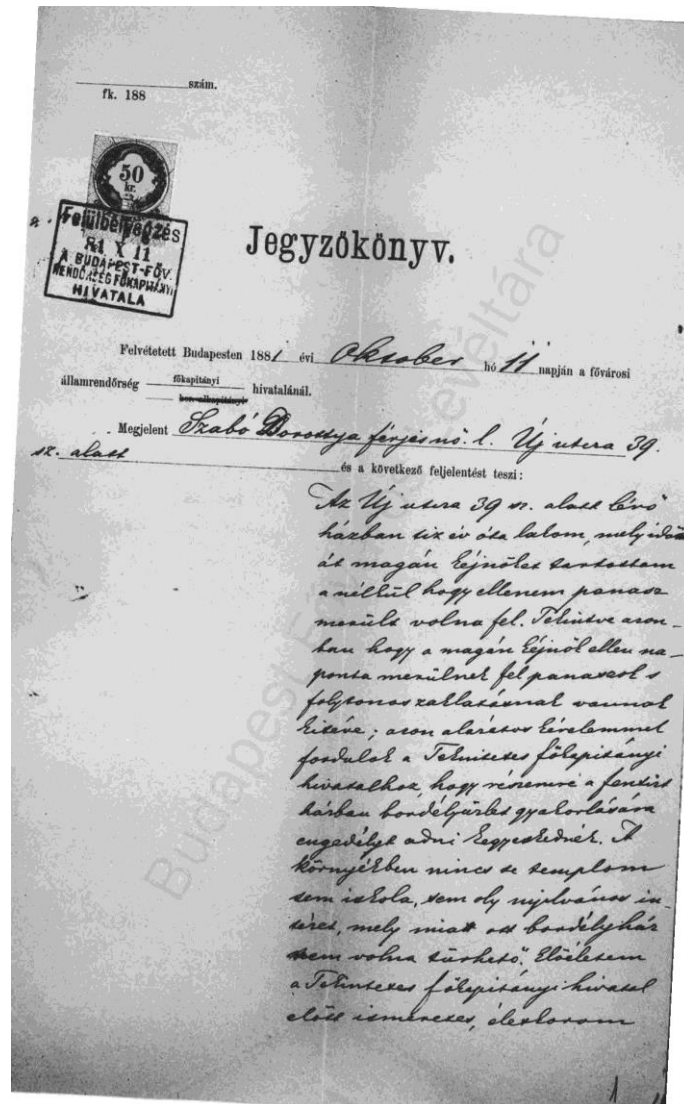 szám.
fk. 188
50
kr.
Felülbélyegzés
81 X 11
A BUDAPEST-FŐV.
RENDŐRSÉG FŐKAPITÁNYI
HIVATALA
Jegyzőkönyv.
Felvétetett Budapesten 1881 évi Oktober hó 11 napján a fővárosi
államrendőrség főkapitányi hivatalánál.
ker. alkapitányi
Megjelent Szabó Dorottya férjes nő. l. Új utcza 39.
sz. alatt és a következő feljelentést teszi:
Az Új utcza 39 sz. alatt lévő
házban tiz év óta lakom, mely idő
át magán kéjnőket tartottam
a nélkül hogy ellenem panasz
merült volna fel. Tekintve azon-
ban hogy a magán kéjnők ellen na-
ponta merülnek fel panaszok s
folytonos zaklatásnak vannak
kitéve; azon alázatos kérelemmel
fordulok a Tekintetes főkapitányi
hivatalhoz, hogy részemre a fentirt
házban bordélyüzlet gyakorlására
engedélyt adni kegyeskednék. A
környékben nincs se templom
sem iskola, sem oly nyilvános in-
tézet, mely miatt ott bordélyház
nem volna tűrhető. Előéletem
a Tekintetes főkapitányi hivatal
előtt ismeretes, életkorom
1
Budapest Főváros Levéltára